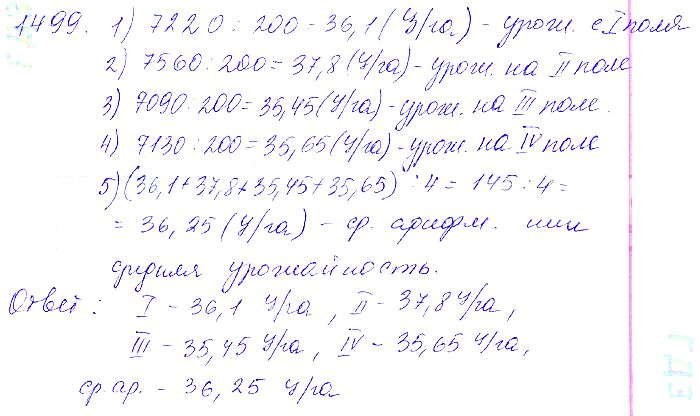 1499. 1) 7220 : 200 = 36,1 (ц/га) - урож. с I поля
2) 7560 : 200 = 37,8 (ц/га) - урож. на II поле
3) 7090 : 200 = 35,45 (ц/га) - урож. на III поле.
4) 7130 : 200 = 35,65 (ц/га) - урож. на IV поле
5) (36,1 + 37,8 + 35,45 + 35,65) : 4 = 145 : 4 =
= 36,25 (ц/га) - ср. арифм. или
средняя урожайность.
Ответ: I - 36,1 ц/га, II - 37,8 ц/га,
III - 35,45 ц/га, IV - 35,65 ц/га,
ср. ар. - 36,25 ц/га
ГДЗ